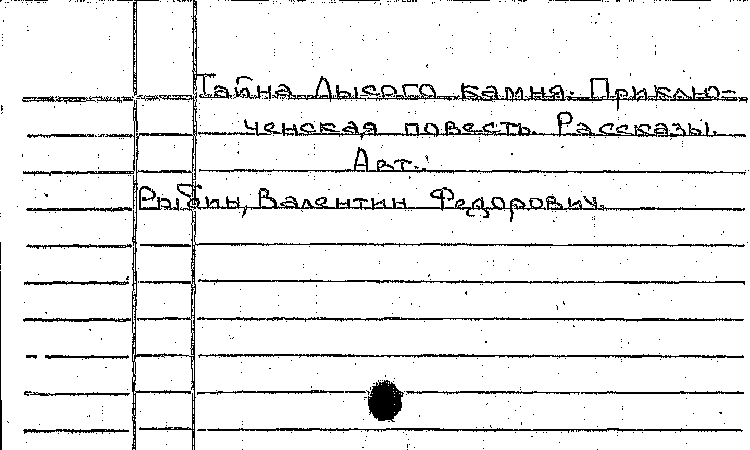 Тайна Лысого камня. Приклю-
ченская повесть. Рассказы.
Авт.:
Рыбин, Валентин Федорович.